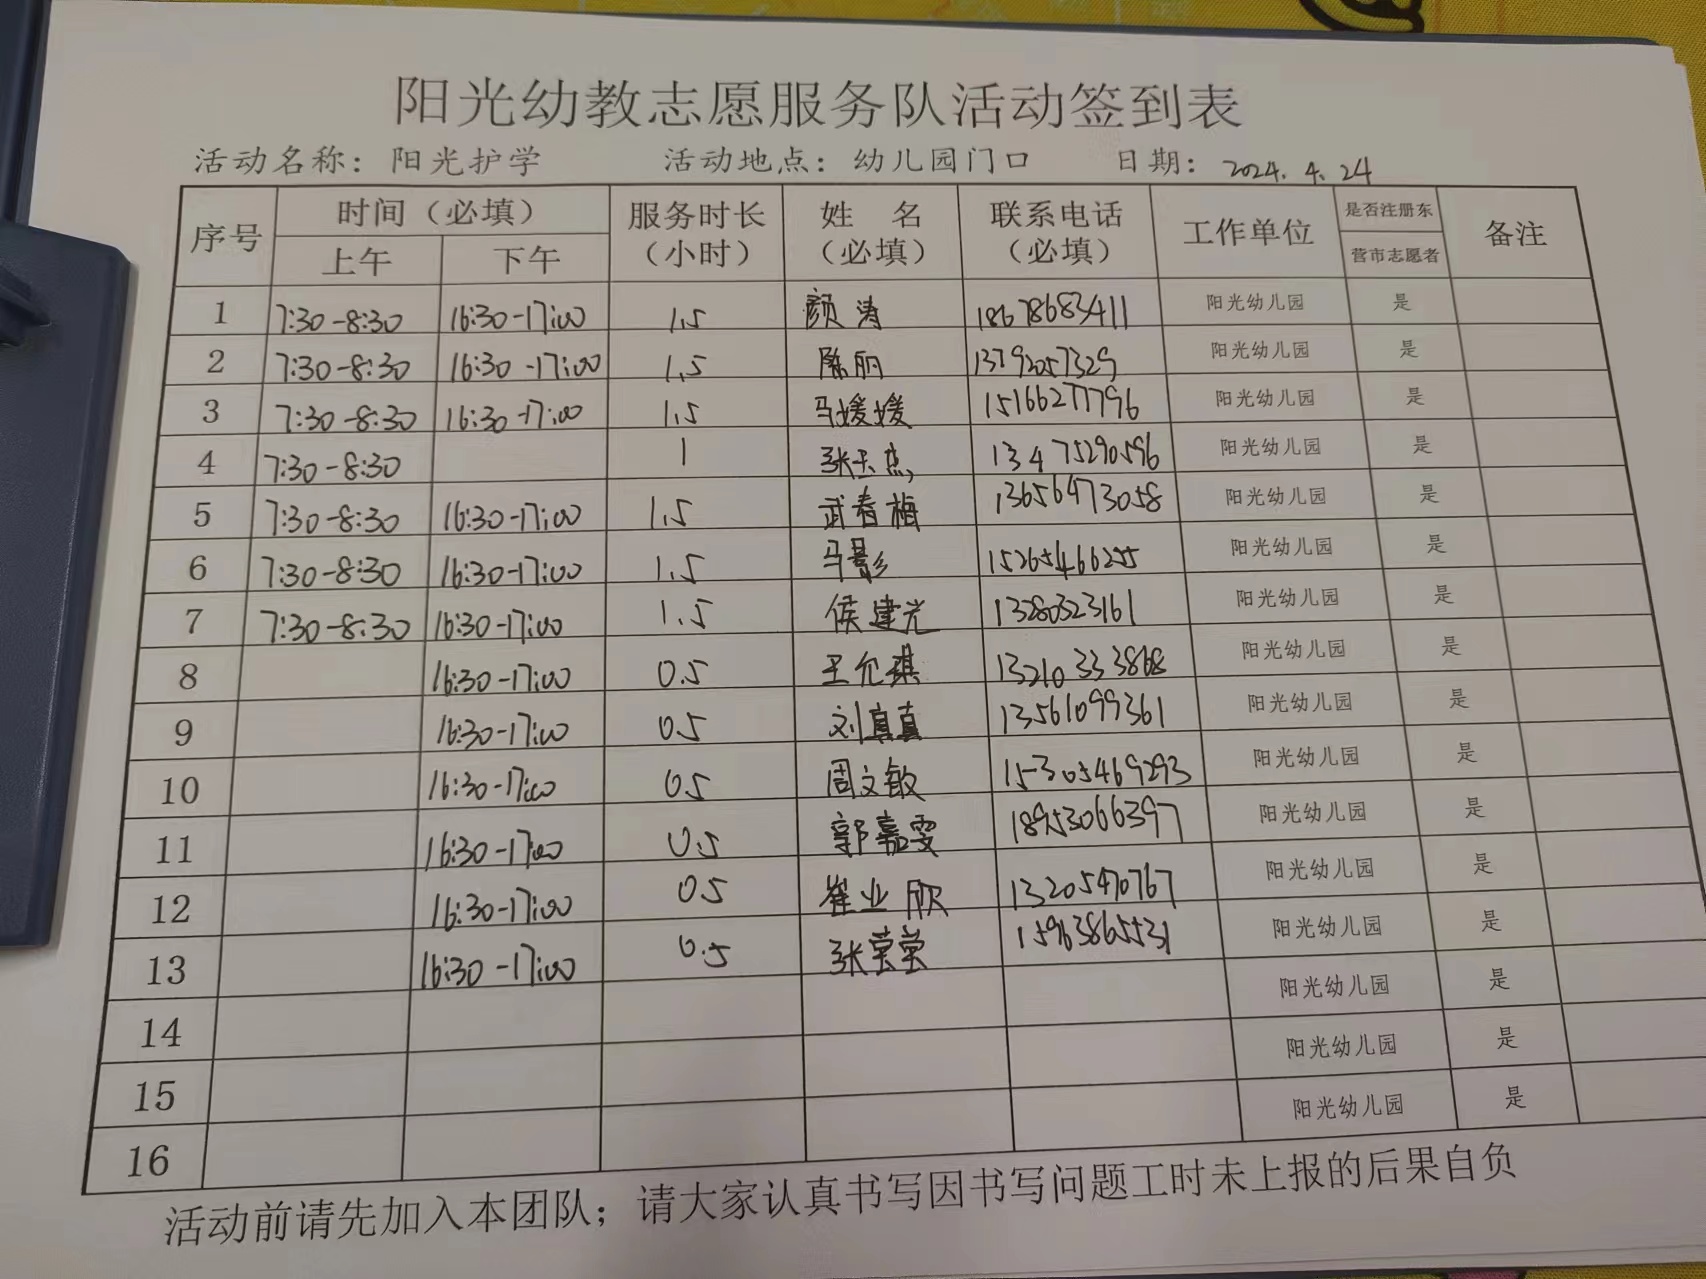 阳光幼教志愿服务队活动签到表
活动名称：阳光护学 活动地点：幼儿园门口 日期：2024.4.24
序号 时间（必填） 服务时长（小时） 姓 名（必填） 联系电话（必填） 工作单位 是否注册东营市志愿者 备注
上午 下午
1 7:30-8:30 16:30-17:00 1.5 颜涛 18678683411 阳光幼儿园 是
2 7:30-8:30 16:30-17:00 1.5 陈丽 13792057329 阳光幼儿园 是
3 7:30-8:30 16:30-17:00 1.5 马媛媛 15166277796 阳光幼儿园 是
4 7:30-8:30 1 张玉杰 13475290596 阳光幼儿园 是
5 7:30-8:30 16:30-17:00 1.5 武春梅 13656473058 阳光幼儿园 是
6 7:30-8:30 16:30-17:00 1.5 马影 15265466255 阳光幼儿园 是
7 7:30-8:30 16:30-17:00 1.5 侯建光 13280323161 阳光幼儿园 是
8 16:30-17:00 0.5 王允琪 13210333868 阳光幼儿园 是
9 16:30-17:00 0.5 刘真真 13561099361 阳光幼儿园 是
10 16:30-17:00 0.5 周文敏 15305469293 阳光幼儿园 是
11 16:30-17:00 0.5 郭嘉雯 18953066397 阳光幼儿园 是
12 16:30-17:00 0.5 崔业欣 13205470767 阳光幼儿园 是
13 16:30-17:00 0.5 张莹莹 15963865531 阳光幼儿园 是
14 阳光幼儿园 是
15 阳光幼儿园 是
16 阳光幼儿园 是
活动前请先加入本团队；请大家认真书写因书写问题工时未上报的后果自负